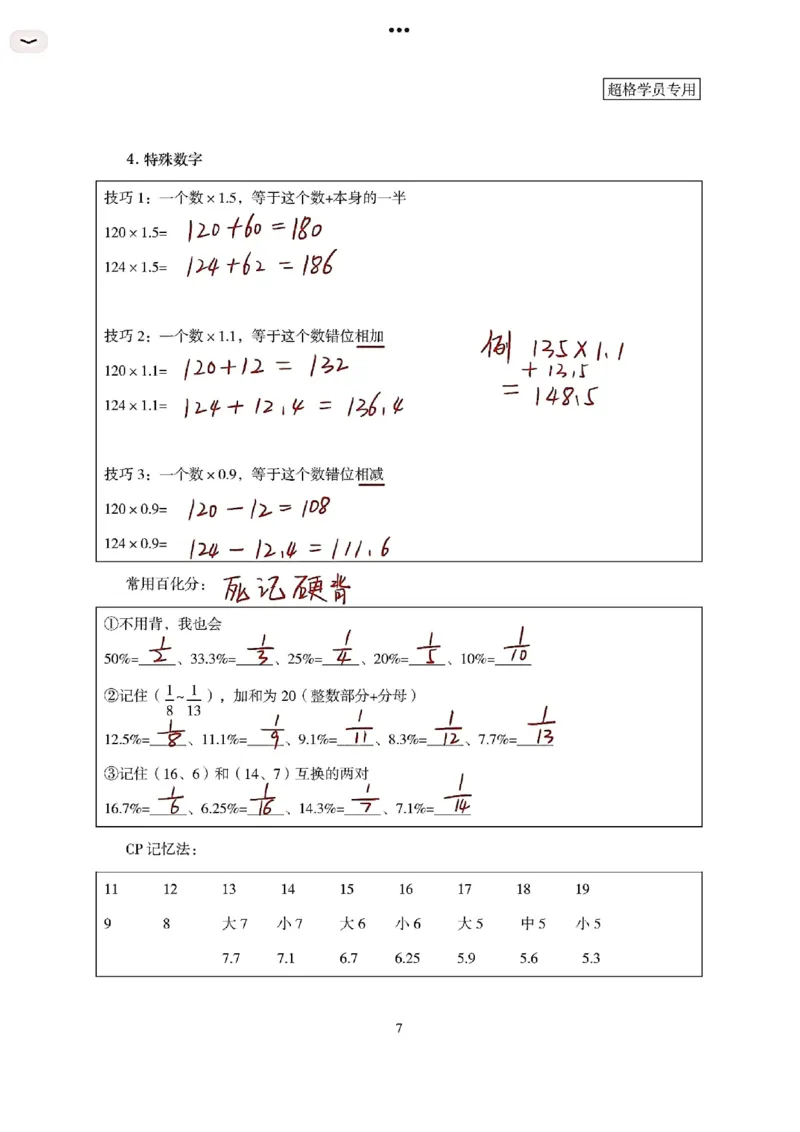 超格学员专用
4. 特殊数字
技巧 1：一个数 × 1.5，等于这个数+本身的一半
120 × 1.5= 120+60=180
124 × 1.5= 124+62=186
技巧 2：一个数 × 1.1，等于这个数错位相加
120 × 1.1= 120+12=132
124 × 1.1= 124+12.4=136.4
例 135×1.1
+ 13.5
= 148.5
技巧 3：一个数 × 0.9，等于这个数错位相减
120 × 0.9= 120-12=108
124 × 0.9= 124-12.4=111.6
常用百化分： 死记硬背
①不用背，我也会
50%=1/2、33.3%=1/3、25%=1/4、20%=1/5、10%=1/10
②记住（1/8~1/13），加和为 20（整数部分+分母）
12.5%=1/8、11.1%=1/9、9.1%=1/11、8.3%=1/12、7.7%=1/13
③记住（16、6）和（14、7）互换的两对
16.7%=1/6、6.25%=1/16、14.3%=1/7、7.1%=1/14
CP 记忆法：
11 12 13 14 15 16 17 18 19
9 8 大 7 小 7 大 6 小 6 大 5 中 5 小 5
7.7 7.1 6.7 6.25 5.9 5.6 5.3
7